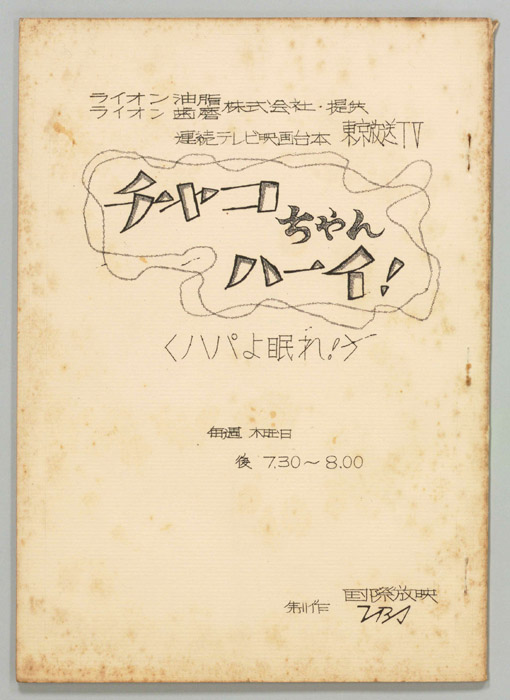 ライオン 油脂
ライオン 歯磨 株式会社・提供
連続テレビ映画台本 東京放送TV
チャコ
ちゃん
ハーイ!
<パパよ眠れ!>
毎週 木曜日
後 7.30〜8.00
制作 国際放映
TBS